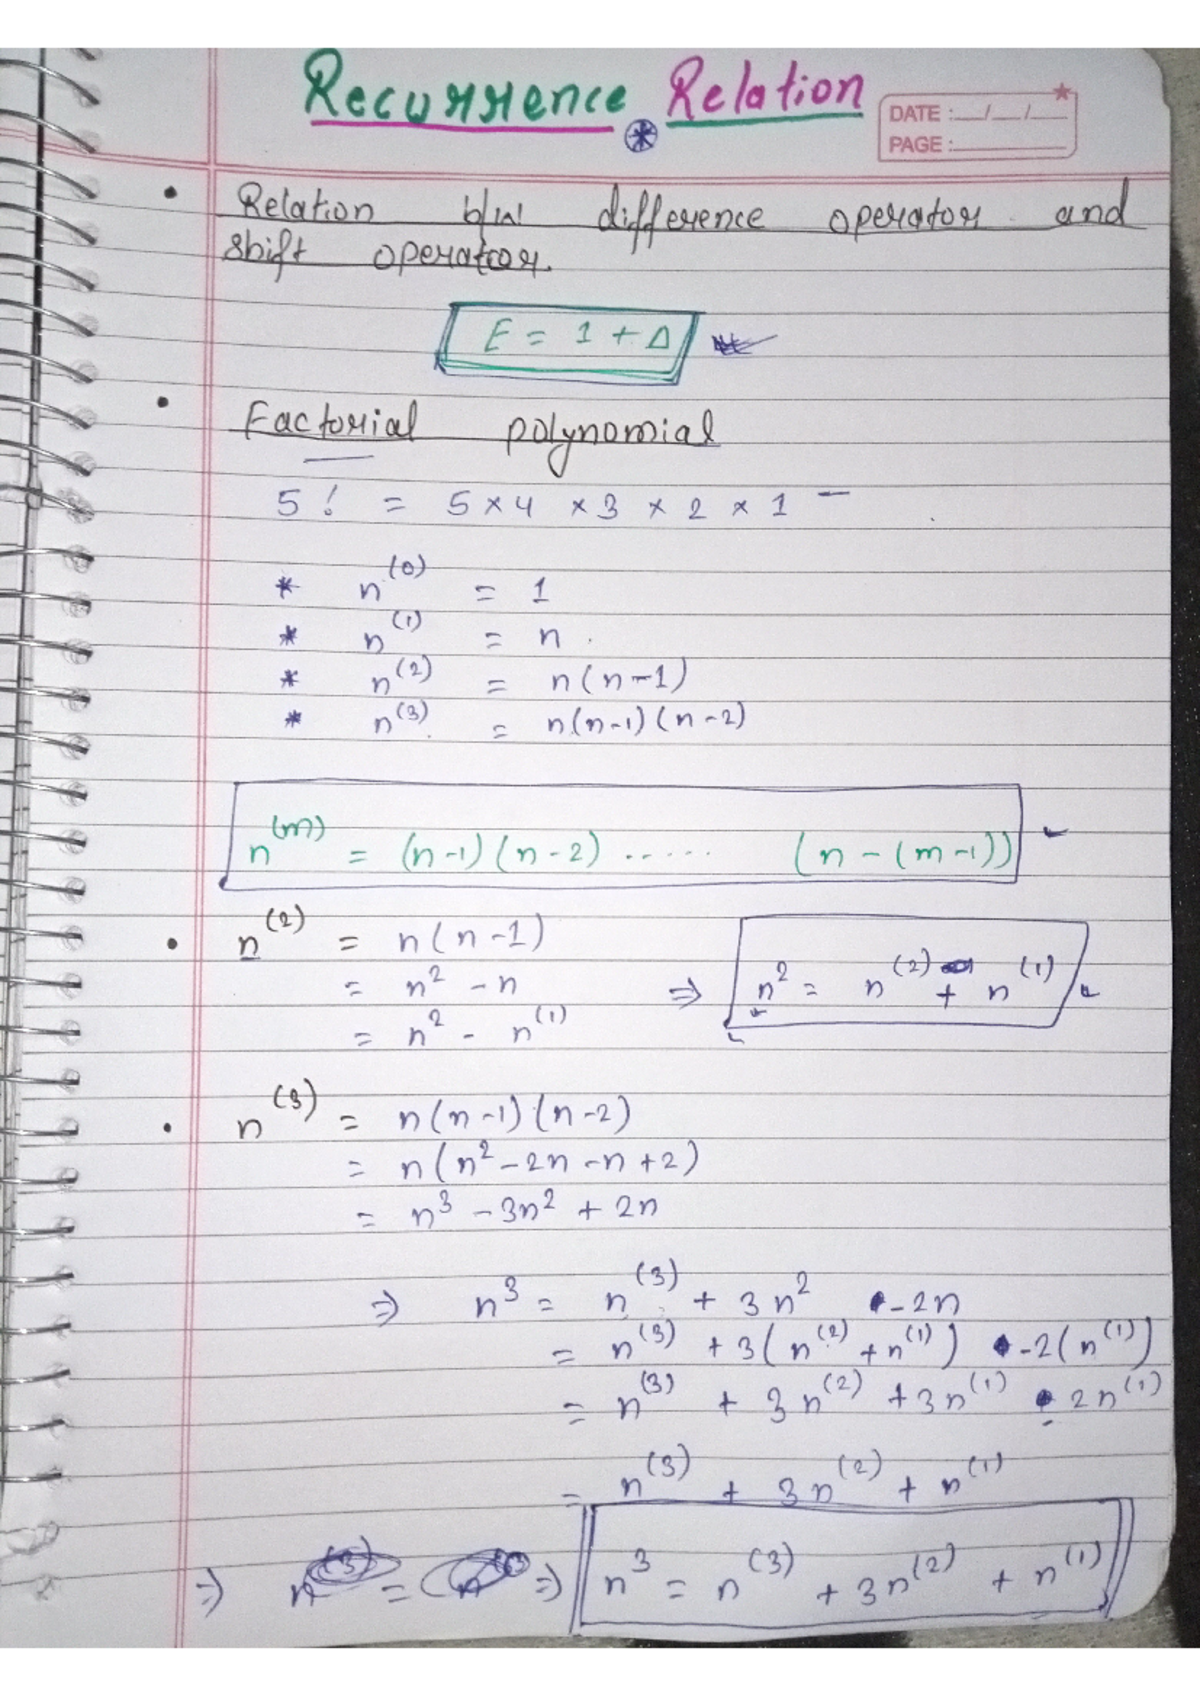 Recurrence Relation
DATE : __/__/__
PAGE : ______
• Relation b/w difference operator and
shift operator.
E = 1 + Δ
• Factorial polynomial
5! = 5 × 4 × 3 × 2 × 1
* n^(0) = 1
* n^(1) = n.
* n^(2) = n(n-1)
* n^(3) = n(n-1)(n-2)
n^(m) = (n-1)(n-2) ...... (n-(m-1))
• n^(2) = n(n-1)
= n² - n
= n² - n^(1)
⇒ n² = n^(2) + n^(1)
• n^(3) = n(n-1)(n-2)
= n(n² - 2n - n + 2)
= n³ - 3n² + 2n
⇒ n³ = n^(3) + 3n² - 2n
= n^(3) + 3(n^(2) + n^(1)) - 2(n^(1))
= n^(3) + 3n^(2) + 3n^(1) - 2n^(1)
= n^(3) + 3n^(2) + n^(1)
⇒ = ⇒ n³ = n^(3) + 3n^(2) + n^(1)